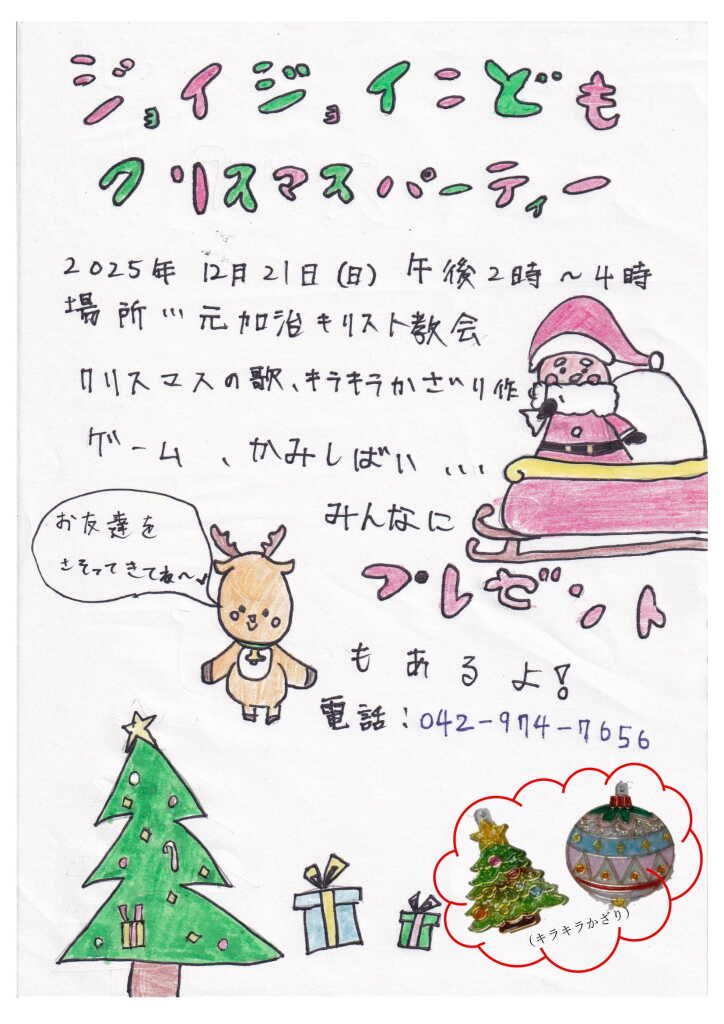 ジョイジョイこども
クリスマスパーティー
2025年 12月21日(日) 午後2時～4時
場所… 元加治キリスト教会
クリスマスの歌、キラキラかざり作
ゲーム、かみしばい、、、
みんなに
お友達を
さそってきてね〜♪
プレゼント
もあるよ!
電話:042-974-7656
(キラキラかざり)